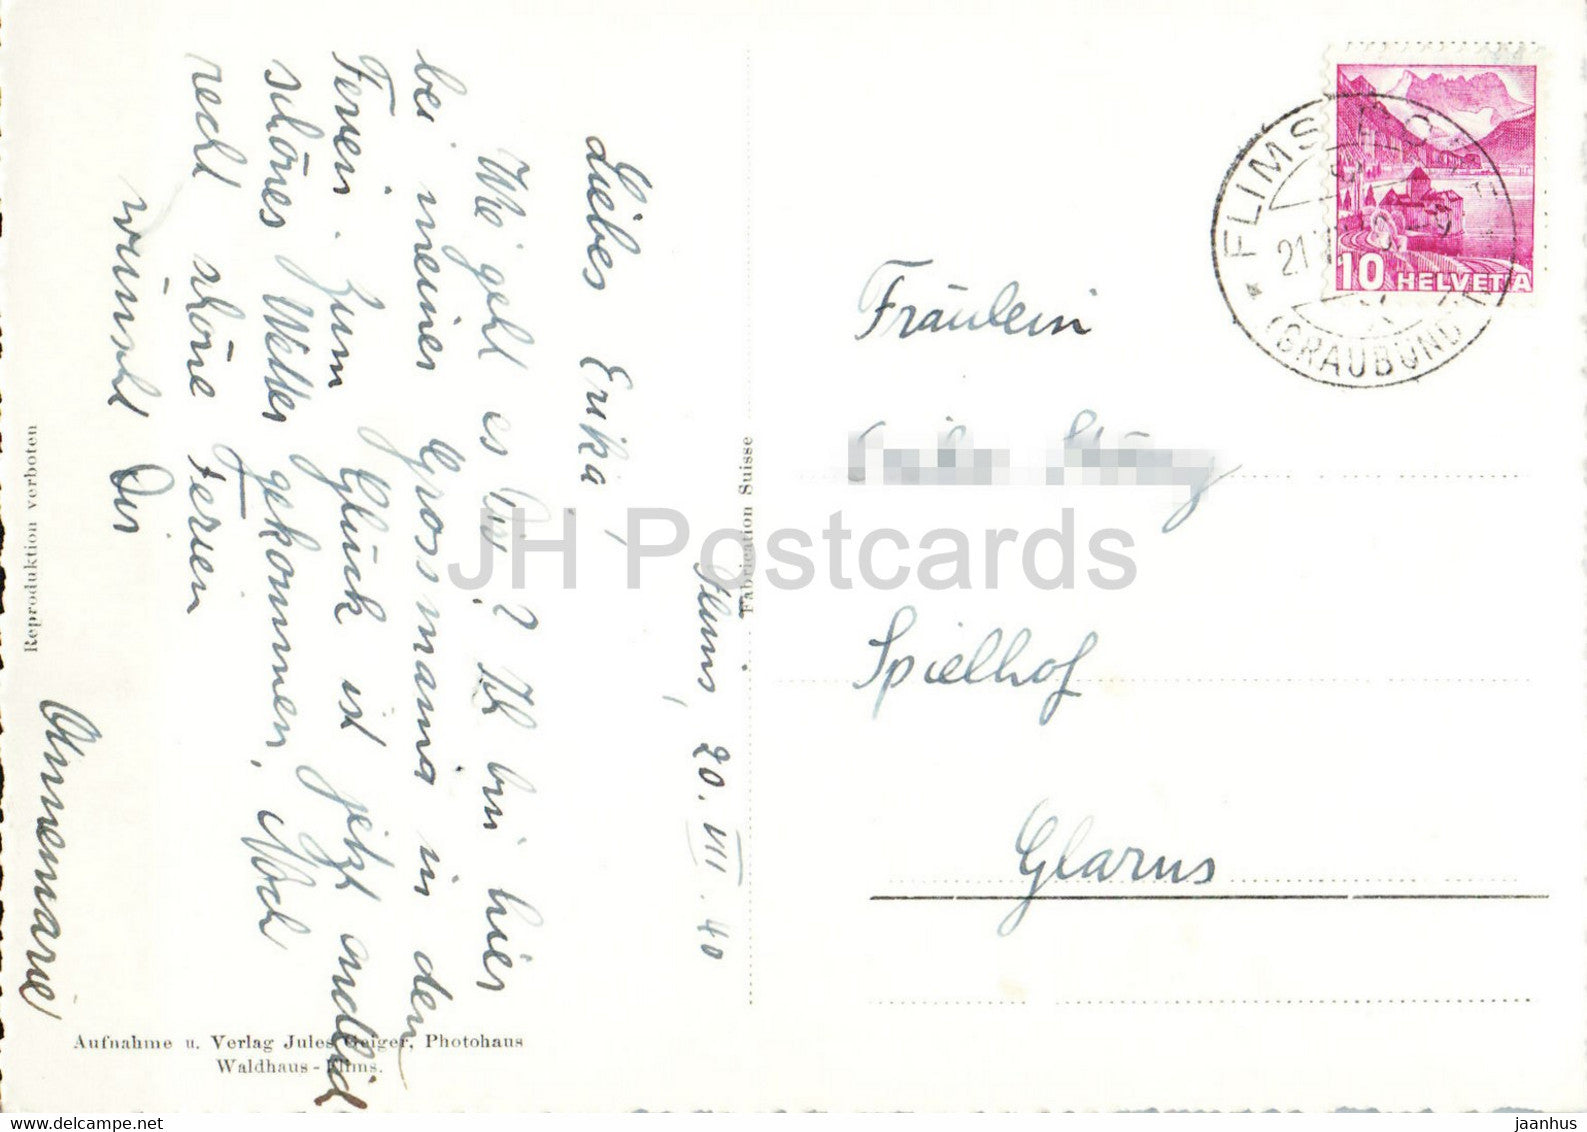 Flims, 20. VIII. 40
Liebes Erika,
Wie geht es Dir? Ich bin hier
bei meiner Grossmama in den
Ferien. Zum Glück ist jetzt endlich
schönes Wetter gekommen. Noch
recht schöne Ferien
wünscht Dir
Annemarie
Reproduktion verboten
Aufnahme u. Verlag Jules Geiger, Photohaus
Waldhaus-Flims.
Fabrication Suisse
Fräulein
Spielhof
Glarus
FLIMS
21
(GRAUBÜND
10 HELVETIA
JH Postcards
www.delcampe.net
jaanhus